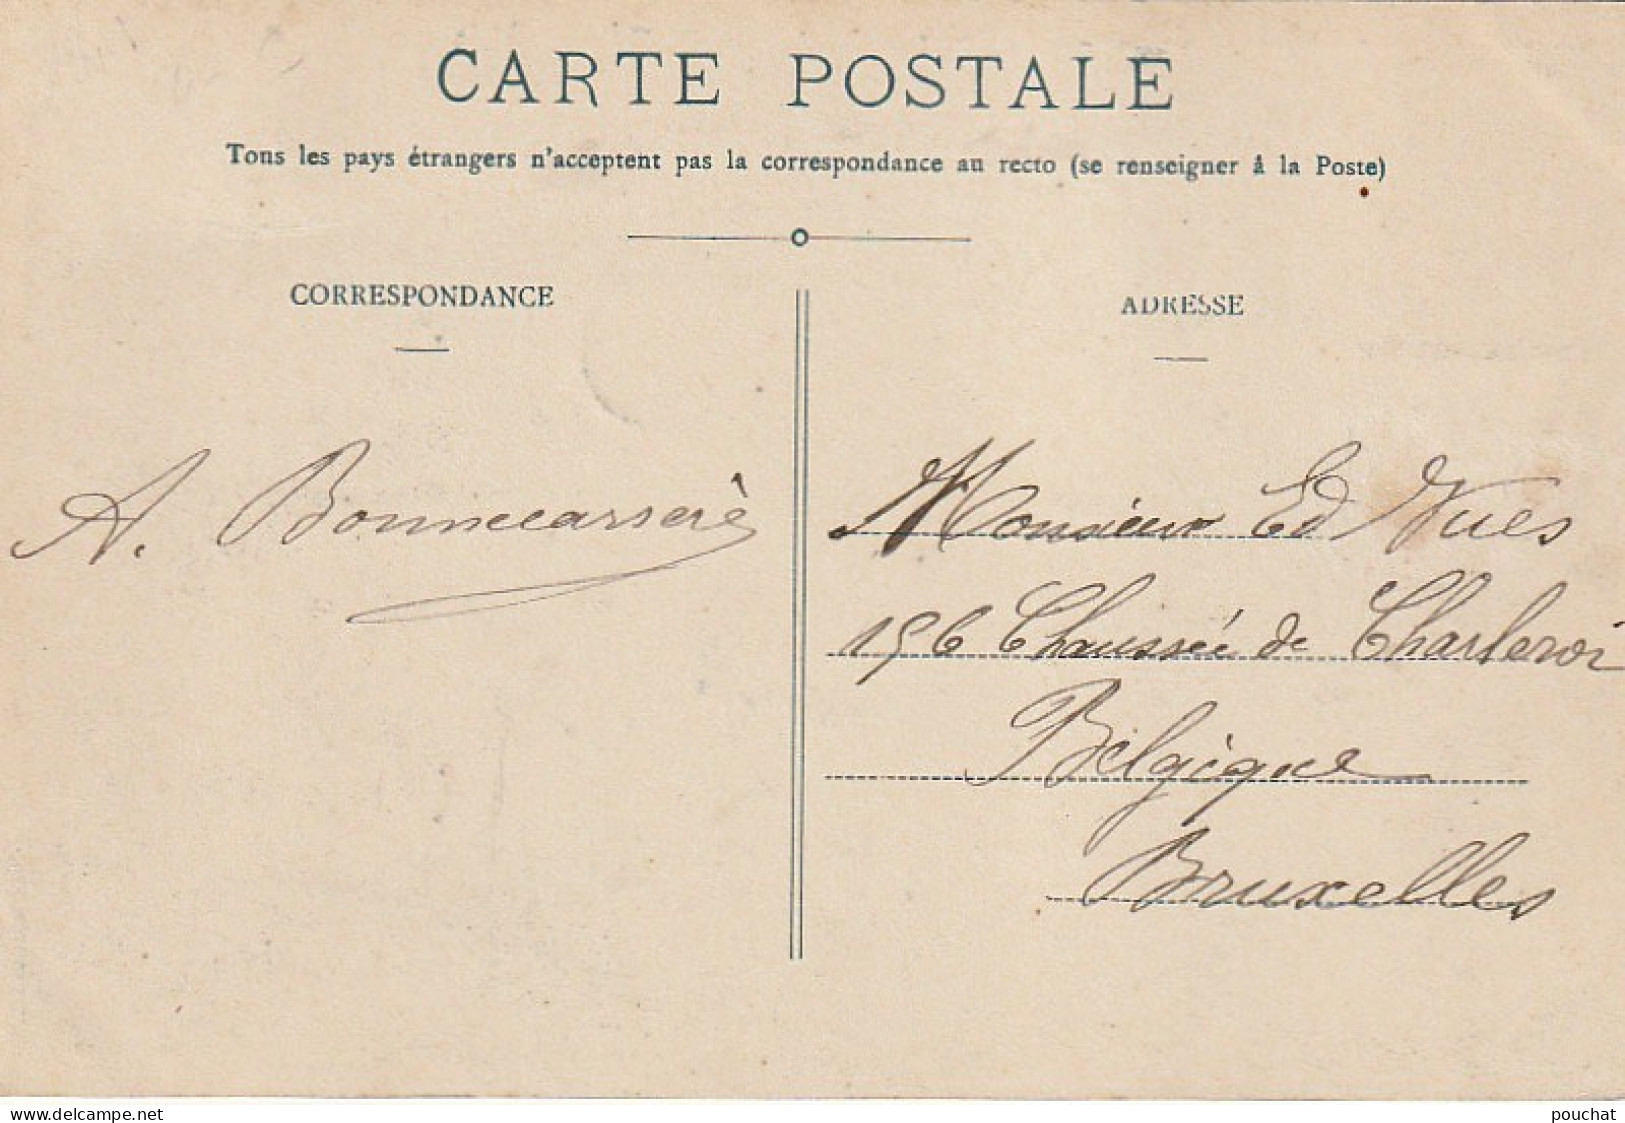 CARTE POSTALE
Tous les pays étrangers n'acceptent pas la correspondance au recto (se renseigner à la Poste)
CORRESPONDANCE
ADRESSE
A. Bonnecarrère
Monsieur Ed Nues
196 Chaussée de Charleroi
Belgique
Bruxelles
www.delcampe.net
pouchat